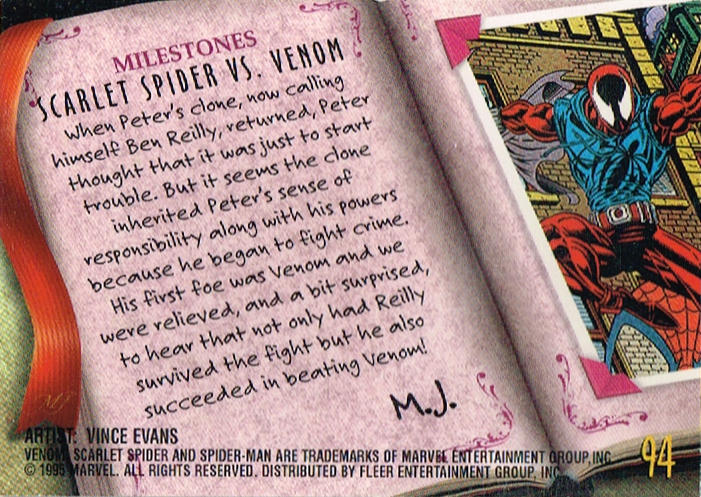 MILESTONES
SCARLET SPIDER VS. VENOM
When Peter's clone, now calling
himself Ben Reilly, returned, Peter
thought that it was just to start
trouble. But it seems the clone
inherited Peter's sense of
responsibility along with his powers
because he began to fight crime.
His first foe was Venom and we
were relieved, and a bit surprised,
to hear that not only had Reilly
survived the fight but he also
succeeded in beating Venom!
M.J.
MJ
ARTIST: VINCE EVANS
VENOM, SCARLET SPIDER AND SPIDER-MAN ARE TRADEMARKS OF MARVEL ENTERTAINMENT GROUP, INC.
© 1995 MARVEL. ALL RIGHTS RESERVED. DISTRIBUTED BY FLEER ENTERTAINMENT GROUP, INC.
94